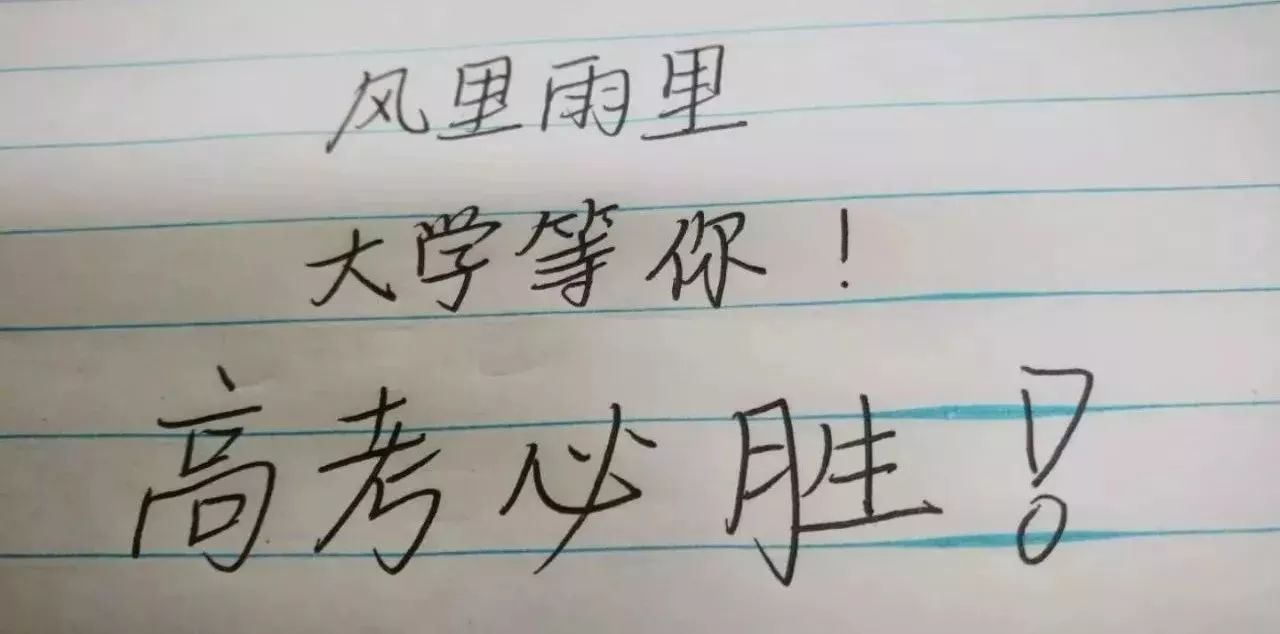 风里雨里
大学等你！
高考必胜！